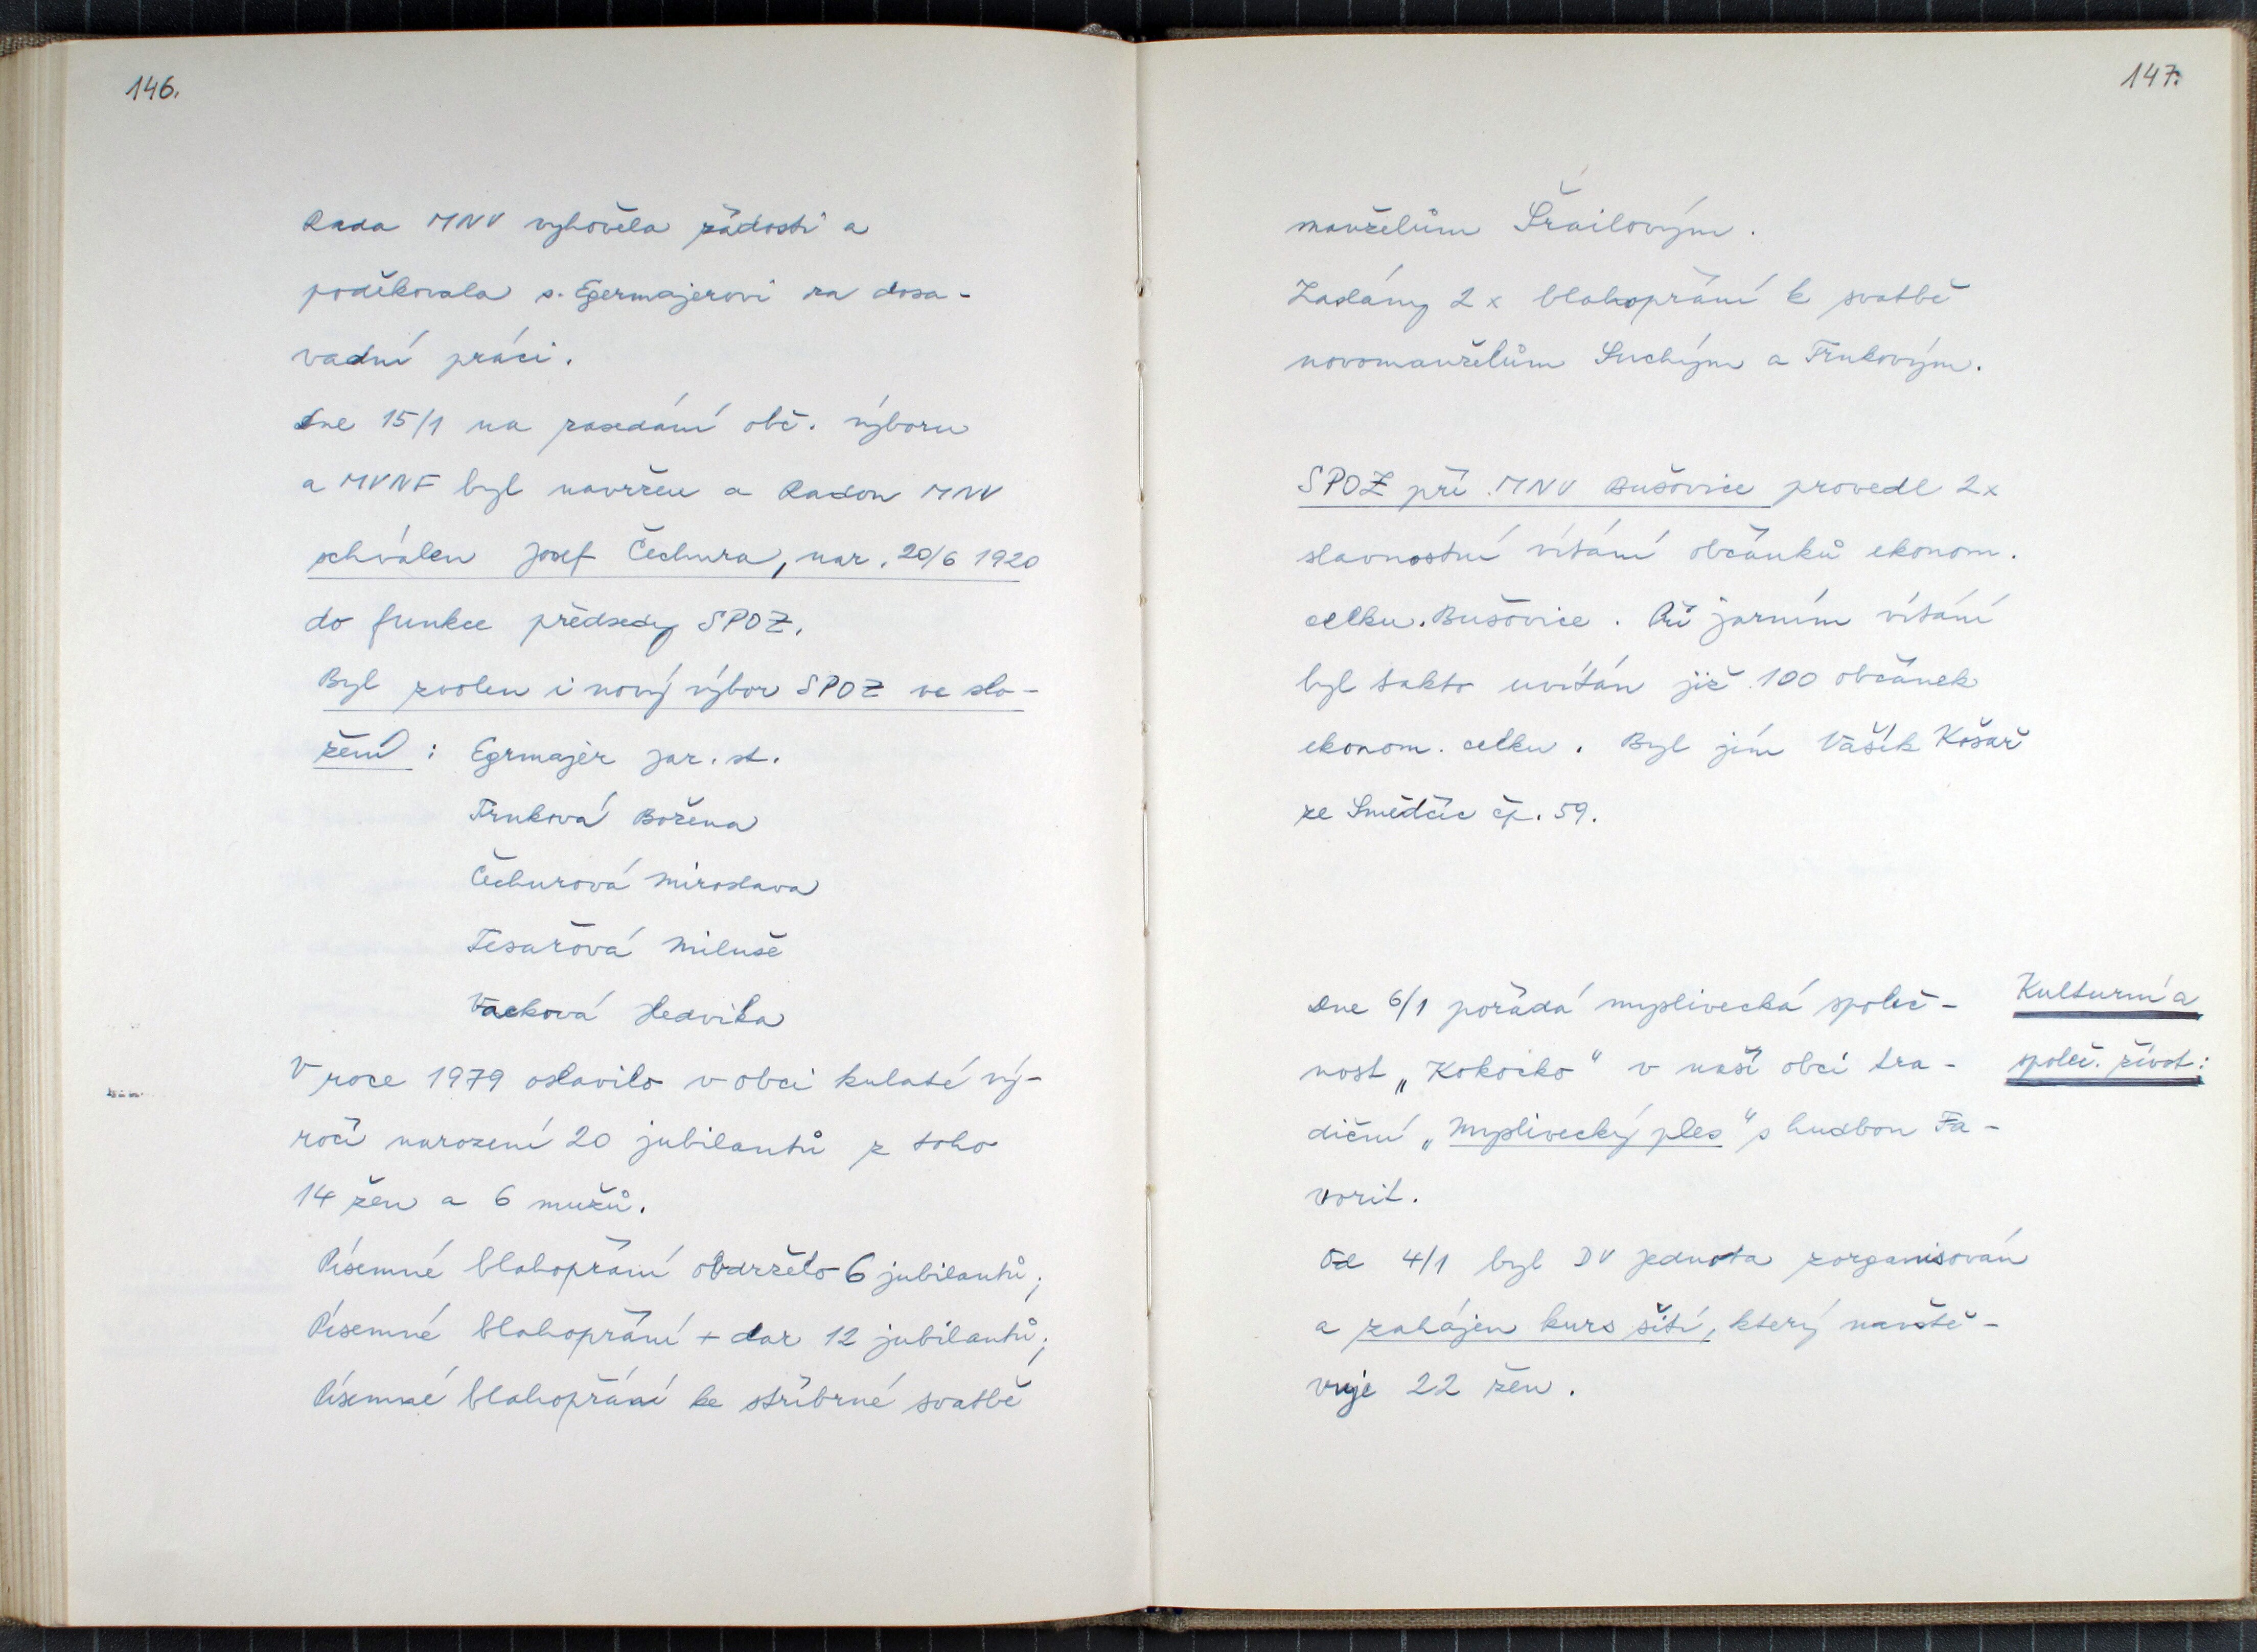 146.
Rada MNV vyhověla žádosti a
poděkovala s. Egermajerovi za dosa-
vadní práci.
Dne 15/1 na zasedání obč. výboru
a MVNF byl navržen a Radou MNV
schválen Josef Čechura, nar. 20/6 1920
do funkce předsedy SPOZ.
Byl zvolen i nový výbor SPOZ ve slo-
žení: Egrmajer Jar. st.
Trnková Božena
Čechurová Miroslava
Tesařová Miluše
Vacková Hedvika
V roce 1979 oslavilo v obci kulaté vý-
ročí narození 20 jubilantů z toho
14 žen a 6 mužů.
Písemné blahopřání obdrželo 6 jubilantů;
Písemné blahopřání + dar 12 jubilantů;
Písemné blahopřání ke stříbrné svatbě
147.
manželům Šrailovým.
Zaslány 2x blahopřání k svatbě
novomanželům Suchým a Trnkovým.
SPOZ při MNV Bušovice provedl 2x
slavnostní vítání občánků ekonom.
celku. Bušovice. Při jarním vítání
byl takto uvítán již 100 občánek
ekonom. celku. Byl jím Vašík Košař
ze Smědčic čp. 59.
Kulturní a
společ. život:
Dne 6/1 pořádá myslivecká společ-
nost „Kokocko" v naší obci tra-
diční „Myslivecký ples" s hudbou Fa-
vorit.
Od 4/1 byl DV Jednota zorganisován
a zahájen kurs šití, který navště-
vuje 22 žen.